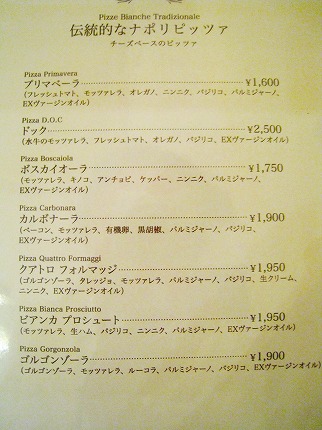 Pizze Bianche Tradizionale
伝統的なナポリピッツァ
チーズベースのピッツァ
Pizza Primavera
プリマベーラ ¥1,600
(フレッシュトマト、モッツァレラ、オレガノ、ニンニク、バジリコ、パルミジャーノ、
EXヴァージンオイル)
Pizza D.O.C
ドック ¥2,500
(水牛のモッツァレラ、フレッシュトマト、オレガノ、バジリコ、EXヴァージンオイル)
Pizza Boscaiola
ボスカイオーラ ¥1,750
(モッツァレラ、キノコ、アンチョビ、ケッパー、ニンニク、パルミジャーノ、
EXヴァージンオイル)
Pizza Carbonara
カルボナーラ ¥1,900
(ベーコン、モッツァレラ、有機卵、黒胡椒、パルミジャーノ、バジリコ、
EXヴァージンオイル)
Pizza Quattro Formaggi
クアトロ フォルマッジ ¥1,950
(ゴルゴンゾーラ、タレッジョ、モッツァレラ、パルミジャーノ、バジリコ、生クリーム、
ニンニク、EXヴァージンオイル)
Pizza Bianca Prosciutto
ビアンカ プロシュート ¥1,950
(モッツァレラ、生ハム、バジリコ、ニンニク、パルミジャーノ、EXヴァージンオイル)
Pizza Gorgonzola
ゴルゴンゾーラ ¥1,900
(ゴルゴンゾーラ、モッツァレラ、ルーコラ、パルミジャーノ、バジリコ、EXヴァージンオイル)